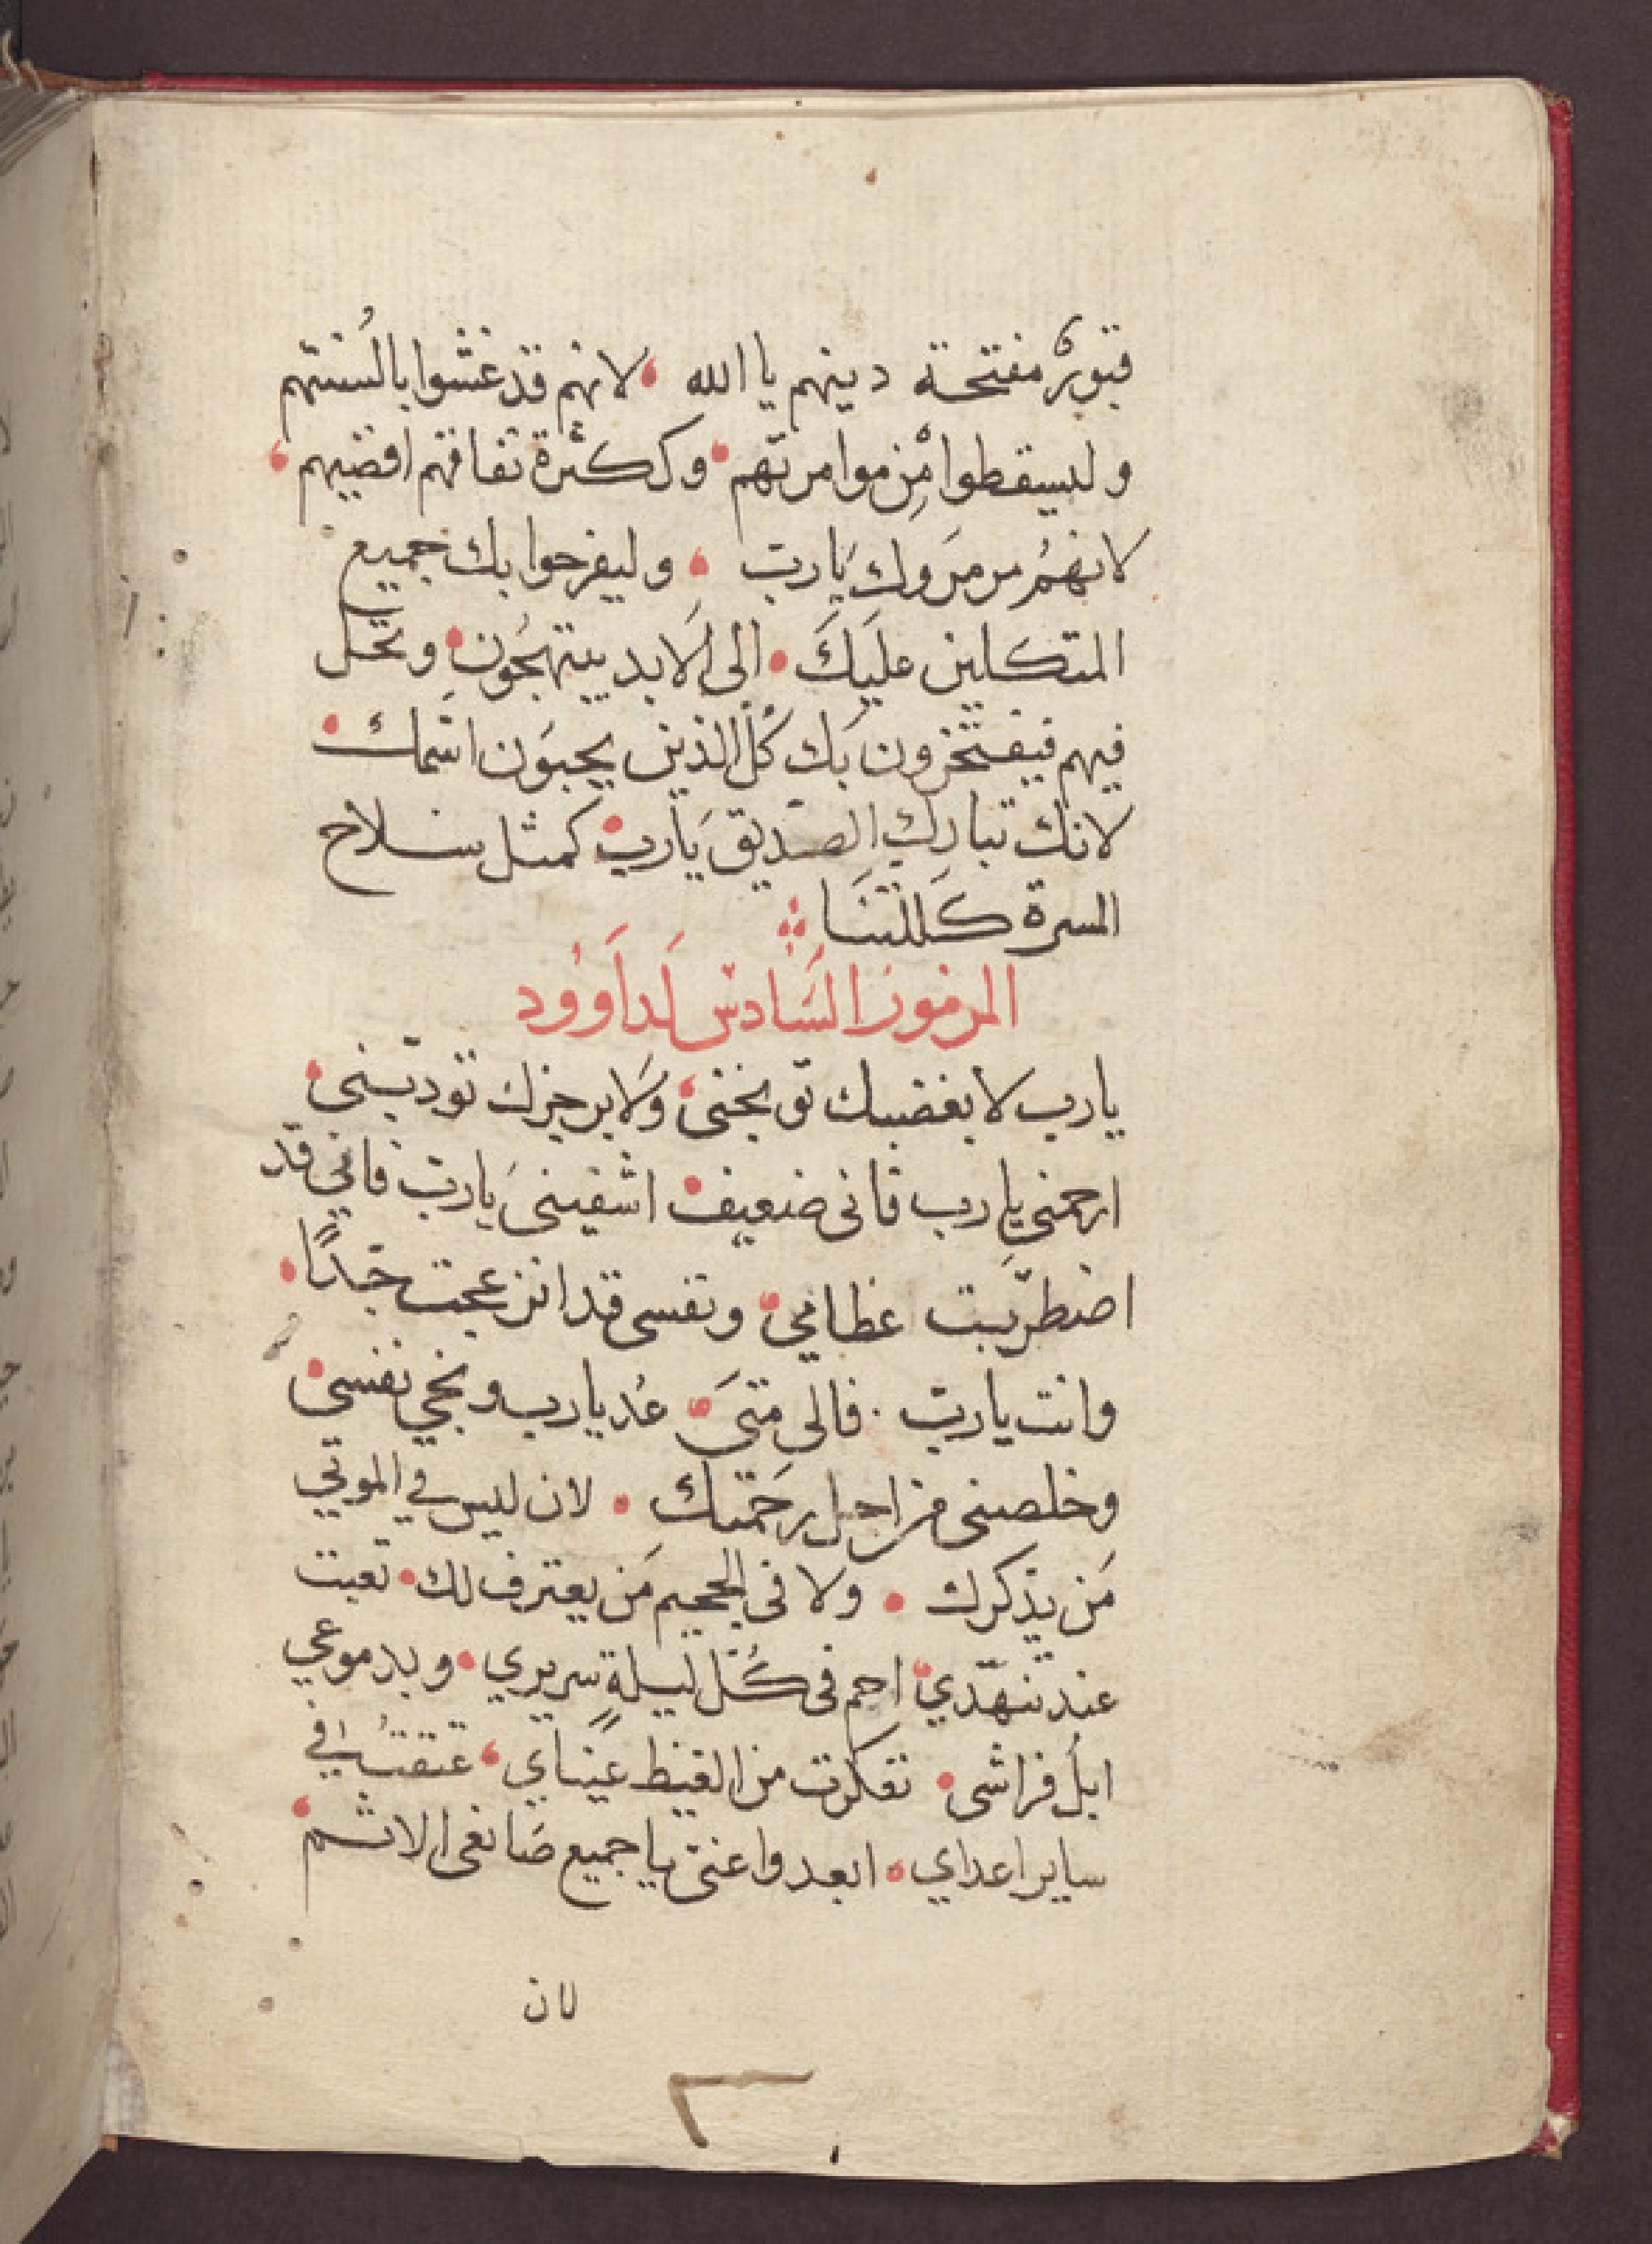 قبورٌ مفتحة دينهم يا الله لانهم قد غشوا بالسنتهم
وليسقطوا مِن موامرتهم وككثرة نفاقهم اقضيهم
لانهُم مرمرَوك يَارب وليفرحوا بك جميع
المتكلين عليَكَ الى الَابد يبتهجُون وتحل
فيهم فيفتخرون بَك كُل الذين يحبوَن اسمك
لانك تبارك الصديق يَارب كمثل سلاح
المسرة كَللتنَا
المزمور السَادس لَداَوود
يارب لا بغضبك توبخنى وَلا برجزك تودبنى
ارحمنى يارب فانى ضعيف اشفينى يَارب فانى قد
اضطرّبت عظامي ونفسى قد انزعجت جَداً
وانت يارب . فالى متىَ عُد يارب ونجي نفسى
وخلصنى من اجل رحَمتك لان ليس في الموتي
مَن يذكرك ولا فى الجحيم مَن يعترف لك تعبت
عند تنهّدي احم فى كُل ليلةٍ سريري وبدموعي
ابلُ فراشى تعكرت من الغيظ عيَناي عتقتُ في
ساير اعداي ابعدوا عنى يا جميع صَانعى الاثم
لان